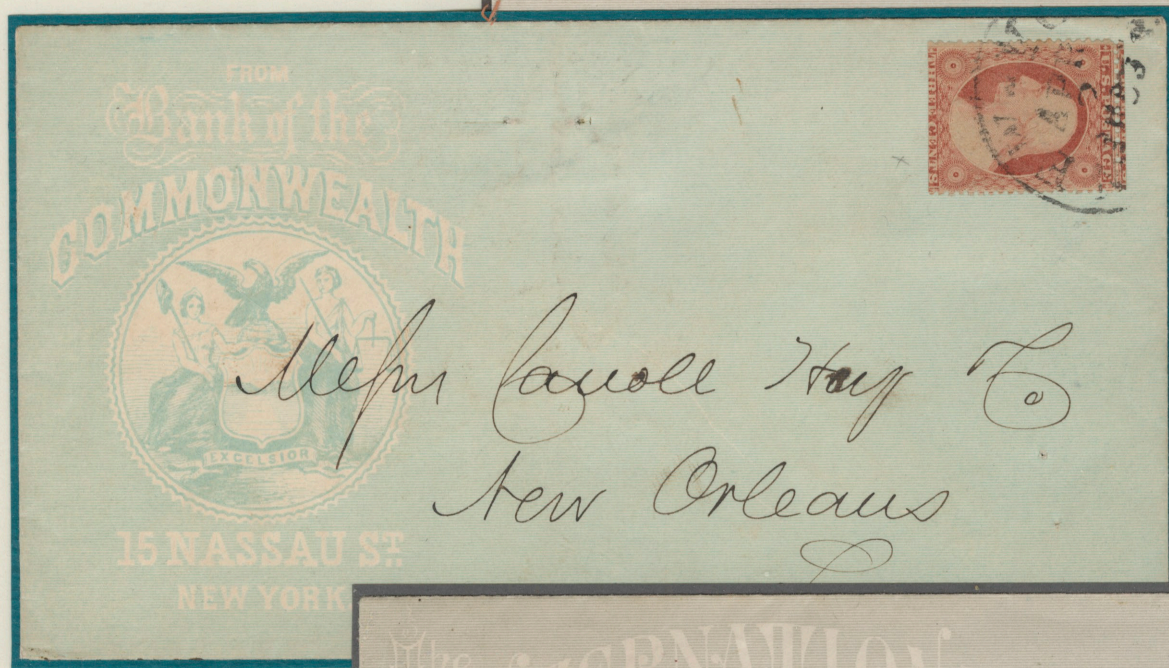 FROM
Bank of the
COMMONWEALTH
EXCELSIOR
15 NASSAU ST.
NEW YORK.
U.S. POSTAGE
THREE CENTS
Messrs Carroll Hoy & Co
New Orleans
The